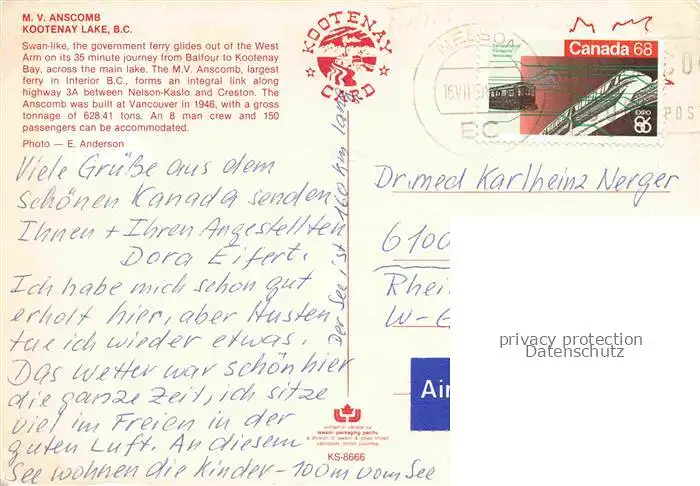 M. V. ANSCOMB
KOOTENAY LAKE, B.C.
Swan-like, the government ferry glides out of the West
Arm on its 35 minute journey from Balfour to Kootenay
Bay, across the main lake. The M.V. Anscomb, largest
ferry in Interior B.C., forms an integral link along
highway 3A between Nelson-Kaslo and Creston. The
Anscomb was built at Vancouver in 1946, with a gross
tonnage of 628.41 tons. An 8 man crew and 150
passengers can be accommodated.
Photo — E. Anderson
KOOTENAY
CARD
NELSON
BC
Canada 68
EXPO
86
POS
Viele Grüße aus dem
schönen Kanada senden
Ihnen + Ihren Angestellten
Dora Eifert.
Ich habe mich schon gut
erholt hier, aber Husten
tue ich wieder etwas.
Das Wetter war schön hier
die ganze Zeit, ich sitze
viel im Freien in der
guten Luft. An diesem
See wohnen die Kinder - 100m vom See
Der See ist 160 km lang
Dr. med Karlheinz Nerger
6100
Rhei
W-G
Air
privacy protection
Datenschutz
printed in canada by
lawson packaging pacific
KS-8666